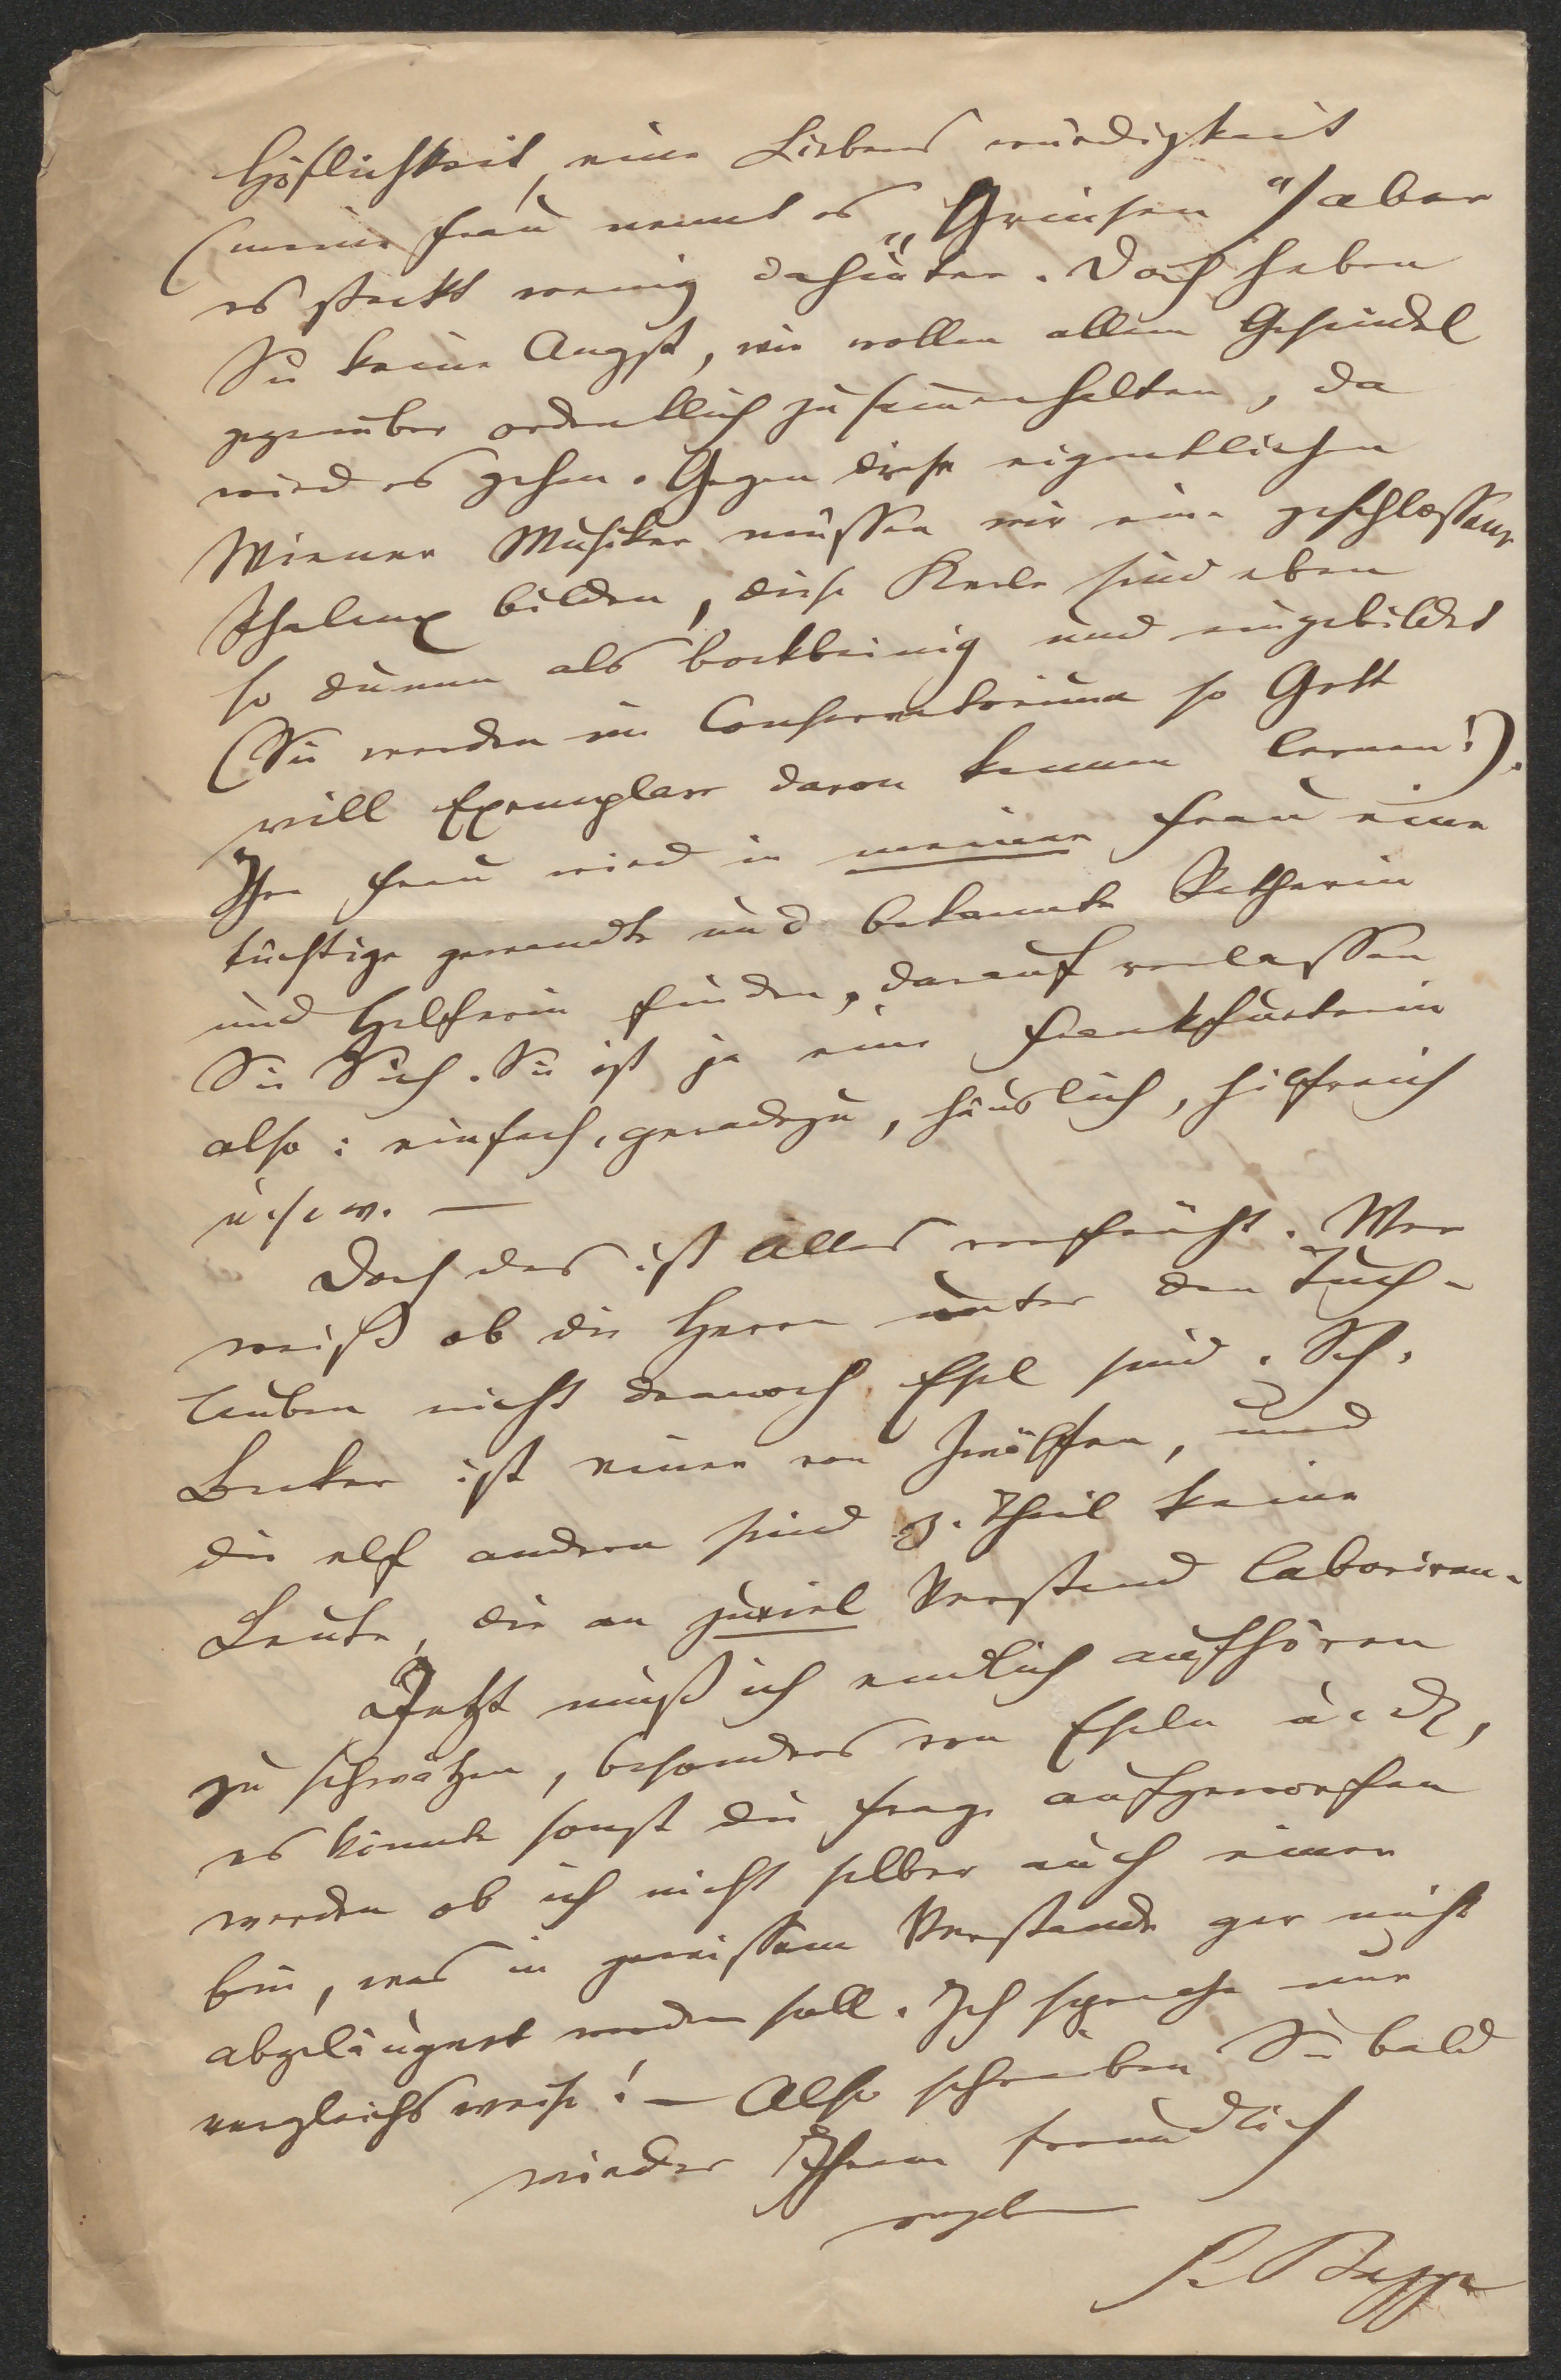 Höflichkeit, eine Liebenswürdigkeit
(meine Frau nennt es „Grinsen“) aber
es steckt wenig dahinter. Doch haben
Sie keine Angst, wir wollen allem Gesindel
gegenüber ordentlich zusam̅enhalten, da
wird es gehen. Gegen diese eigentlichen
Wiener Musiker müssen wir eine geschlossene
Phalanx bilden, diese Kerle sind eben
so dumm als bockbeinig und eingebildet
(Sie werden im Conservatorium so Gott
will Exemplare davon kennen lernen!).
Ihre Frau wird in meiner Frau eine
tüchtige gewandte und bekannte Ratherin
und Helferin finden, darauf verlassen
Sie Sich. Sie ist ja eine Frankfurterin
also: einfach, geradezu, häuslich, hilfreich
u.s.w. —
Doch das ist Alles verfrüht. Wer
weiß ob die Herrn unter den Tuch-
lauben nicht dennoch Esel sind. Sch.
Becker ist einer von Zwölfen, und
die elf andern sind z. Theil keine
Leute, die an zuviel Verstand laboriren.
Jetzt muß ich endlich aufhören
zu schwätzen, besonders von Eseln u. dl,
es könnte sonst die Frage aufgeworfen
werden ob ich nicht selber auch einer
bin, was in gewissem Verstande gar nicht
abgeläugnet werden soll. Ich spreche nur
vergleichsweise! — Also schreiben Sie bald
wieder Ihrem freundlich
ergeben